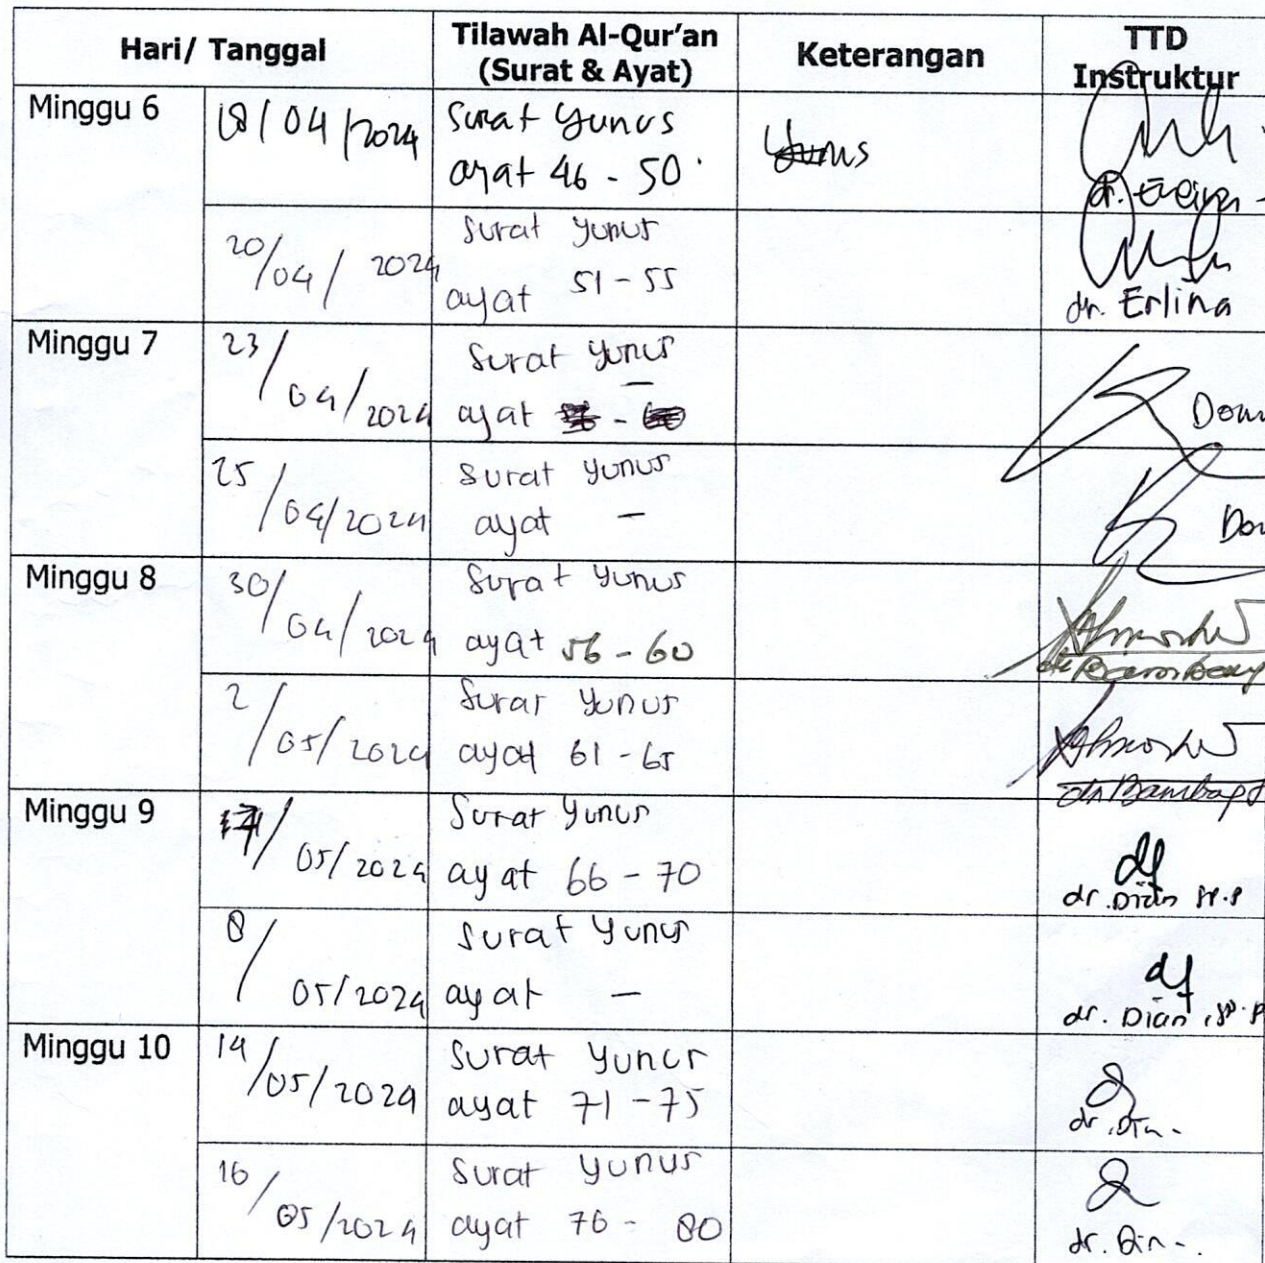 Hari/ Tanggal
Tilawah Al-Qur'an
(Surat & Ayat)
Keterangan
TTD
Instruktur
Minggu 6
18/04/2024
Surat Yunus
ayat 46 - 50
Yunus
20/04/2024
Surat Yunus
ayat 51 - 55
dr. Erlina
Minggu 7
23/04/2024
Surat Yunus
ayat -
25/04/2024
Surat Yunus
ayat -
Minggu 8
30/04/2024
Surat Yunus
ayat 56 - 60
2/05/2024
Surat Yunus
ayat 61 - 65
Minggu 9
7/05/2024
Surat Yunus
ayat 66 - 70
dr. Dian
8/05/2024
Surat Yunus
ayat -
dr. Dian
Minggu 10
14/05/2024
Surat Yunus
ayat 71 - 75
dr.
16/05/2024
Surat Yunus
ayat 76 - 80
dr.